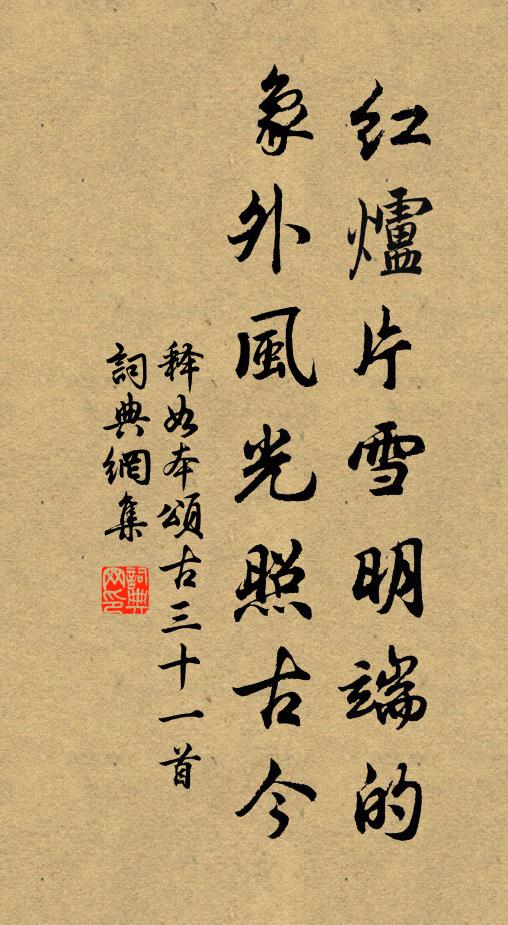 紅爐片雪明端的
象外風光照古今
释如本頌古三十一首
詞典網集
詞典网印